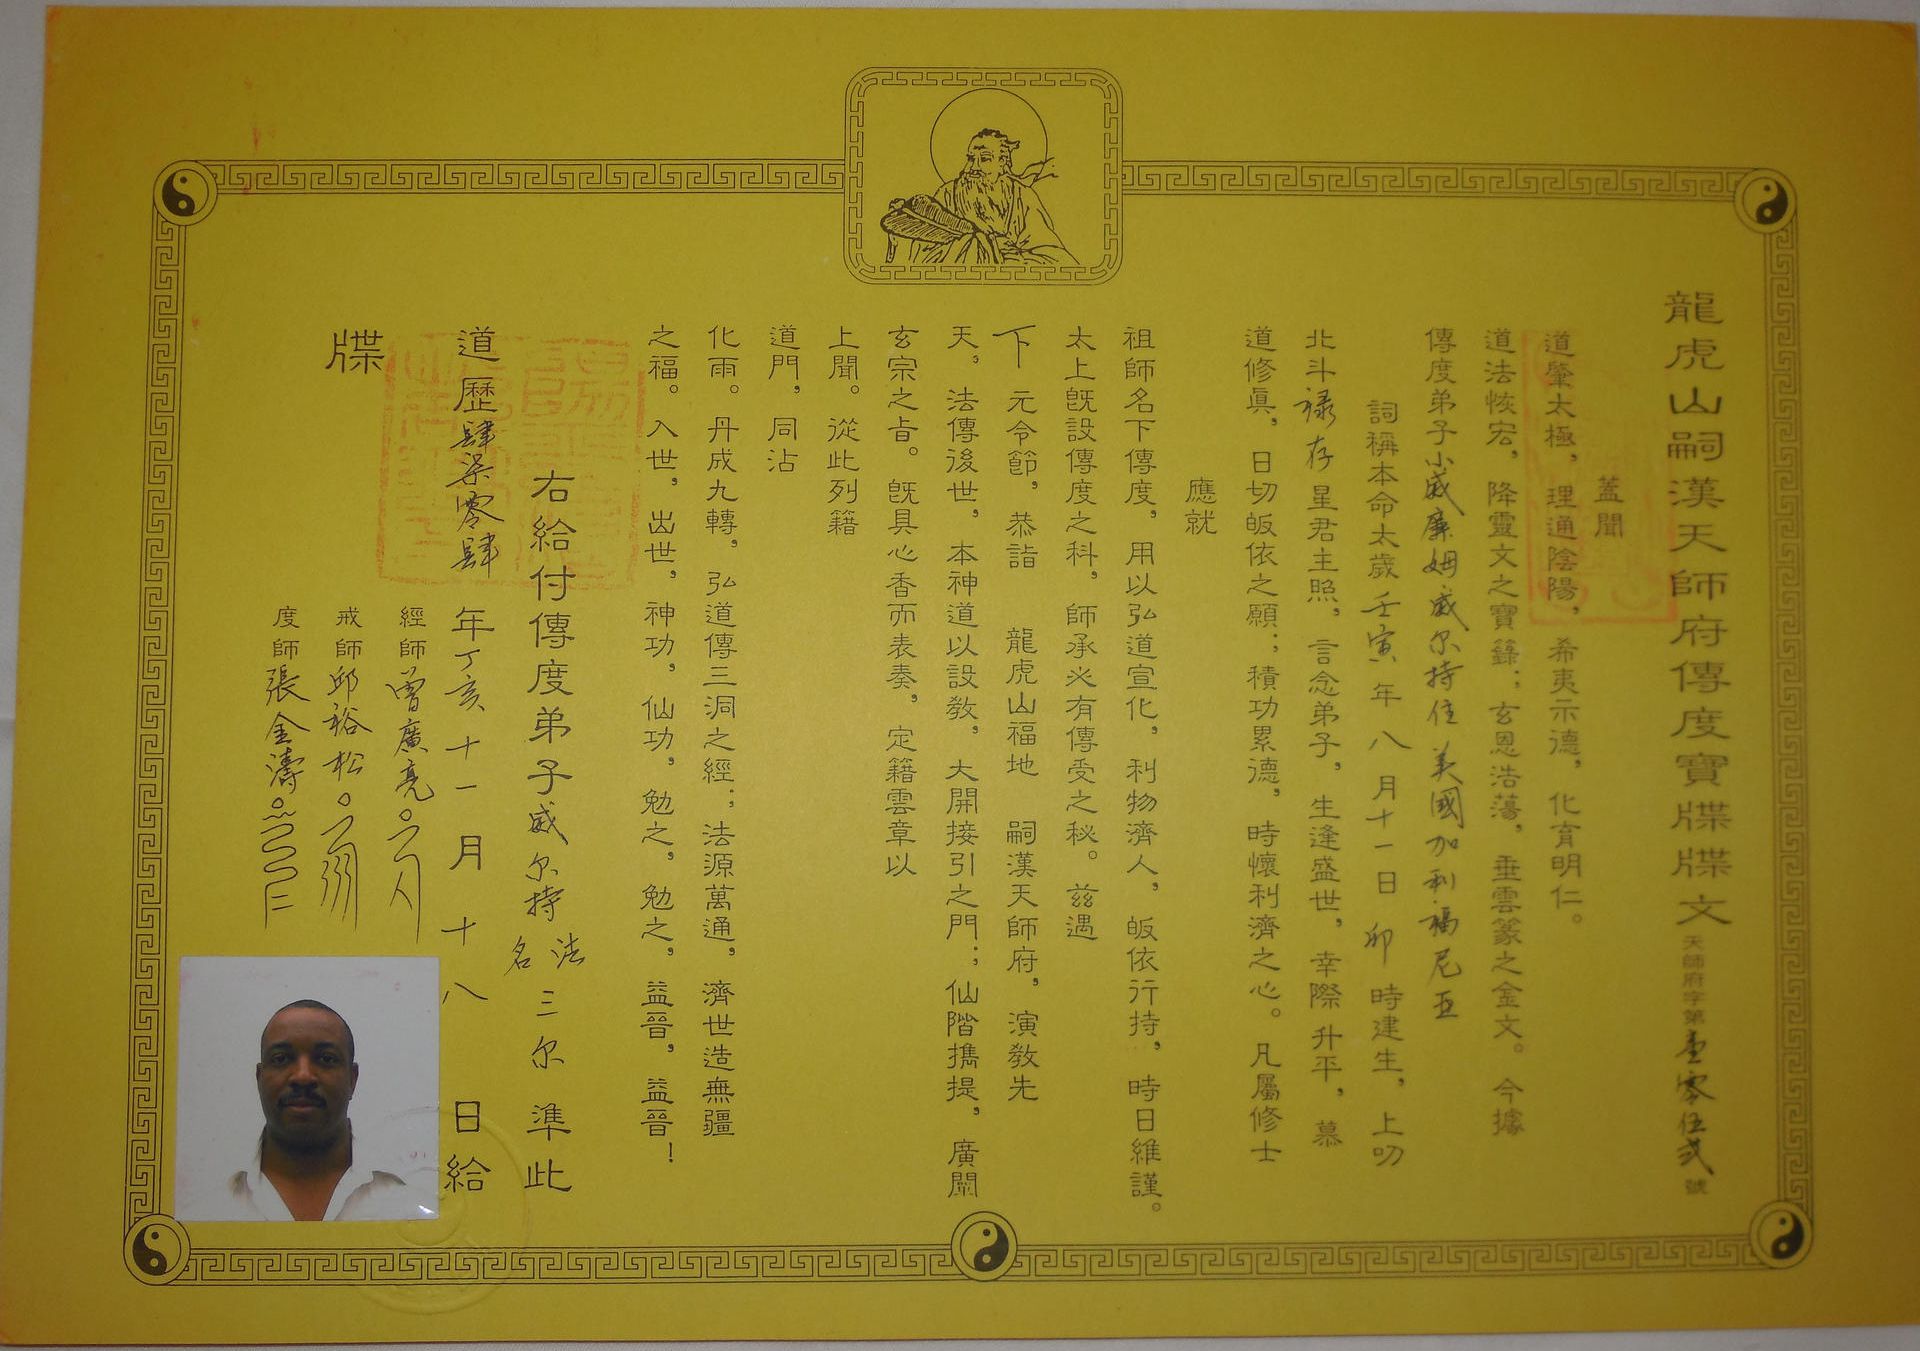 龍虎山嗣漢天師府傳度寶牒牒文 天師府字第壹零伍貳號
蓋聞
道肇太極，理通陰陽，希夷示德，化育明仁。
道法恢宏，降靈文之寶籙；玄恩浩蕩，垂雲篆之金文。今據
傳度弟子小威廉姆威尔持住美國加利福尼亞
詞稱本命太歲壬寅年八月十一日卯時建生，上叨
北斗祿存星君主照，言念弟子，生逢盛世，幸際升平，慕
道修眞，日切皈依之願；積功累德，時懷利濟之心。凡屬修士
應就
祖師名下傳度，用以弘道宣化，利物濟人，皈依行持，時日維謹。
太上旣設傳度之科，師承必有傳受之秘。茲遇
下元令節，恭詣 龍虎山福地 嗣漢天師府，演教先
天。法傳後世，本神道以設教，大開接引之門；仙階攜提，廣闡
玄宗之旨。旣具心香而表奏，定籍雲章以
上聞。從此列籍
道門，同沾
化雨。丹成九轉，弘道傳三洞之經；法源萬通，濟世造無疆
之福。入世，出世，神功，仙功，勉之，勉之，益晉，益晉！
右給付傳度弟子威尔持法名三尔準此
道歷肆柒零肆年丁亥十一月十八日給
牒
經師曾廣亮
戒師邱裕松
度師張金濤